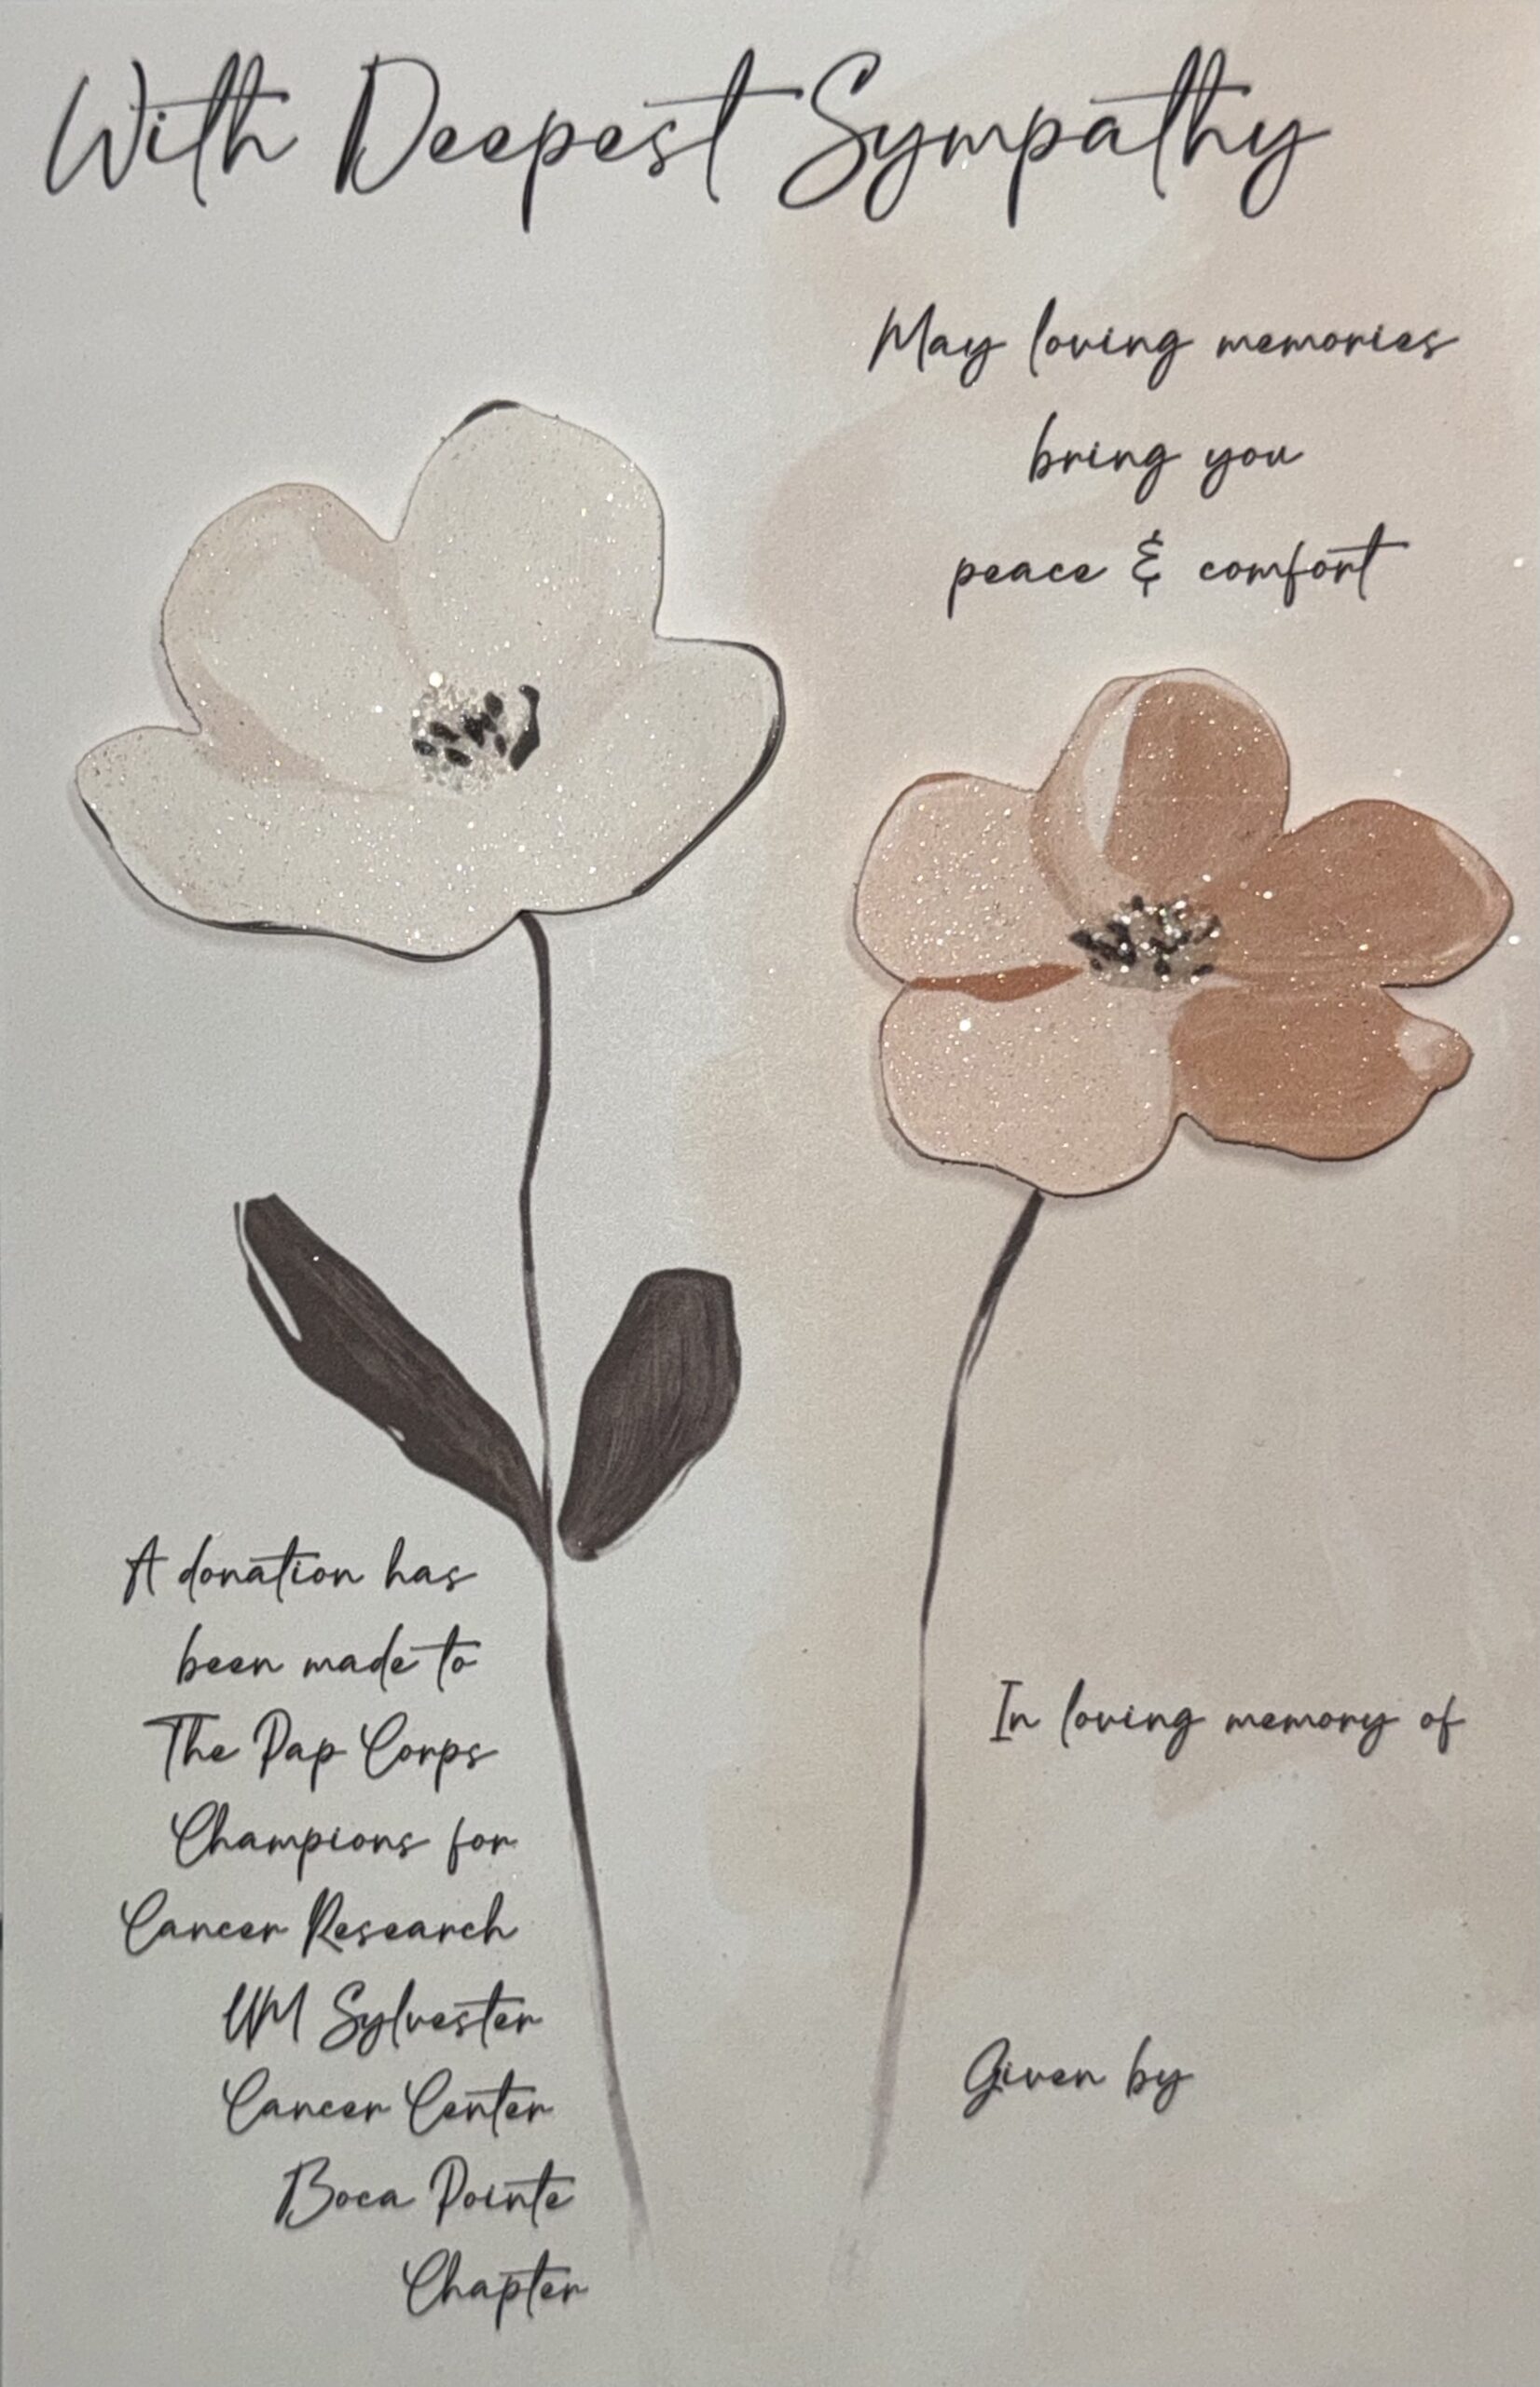 With Deepest Sympathy
May loving memories
bring you
peace & comfort
A donation has
been made to
The Pap Corps
Champions for
Cancer Research
UM Sylvester
Cancer Center
Boca Pointe
Chapter
In loving memory of
Given by